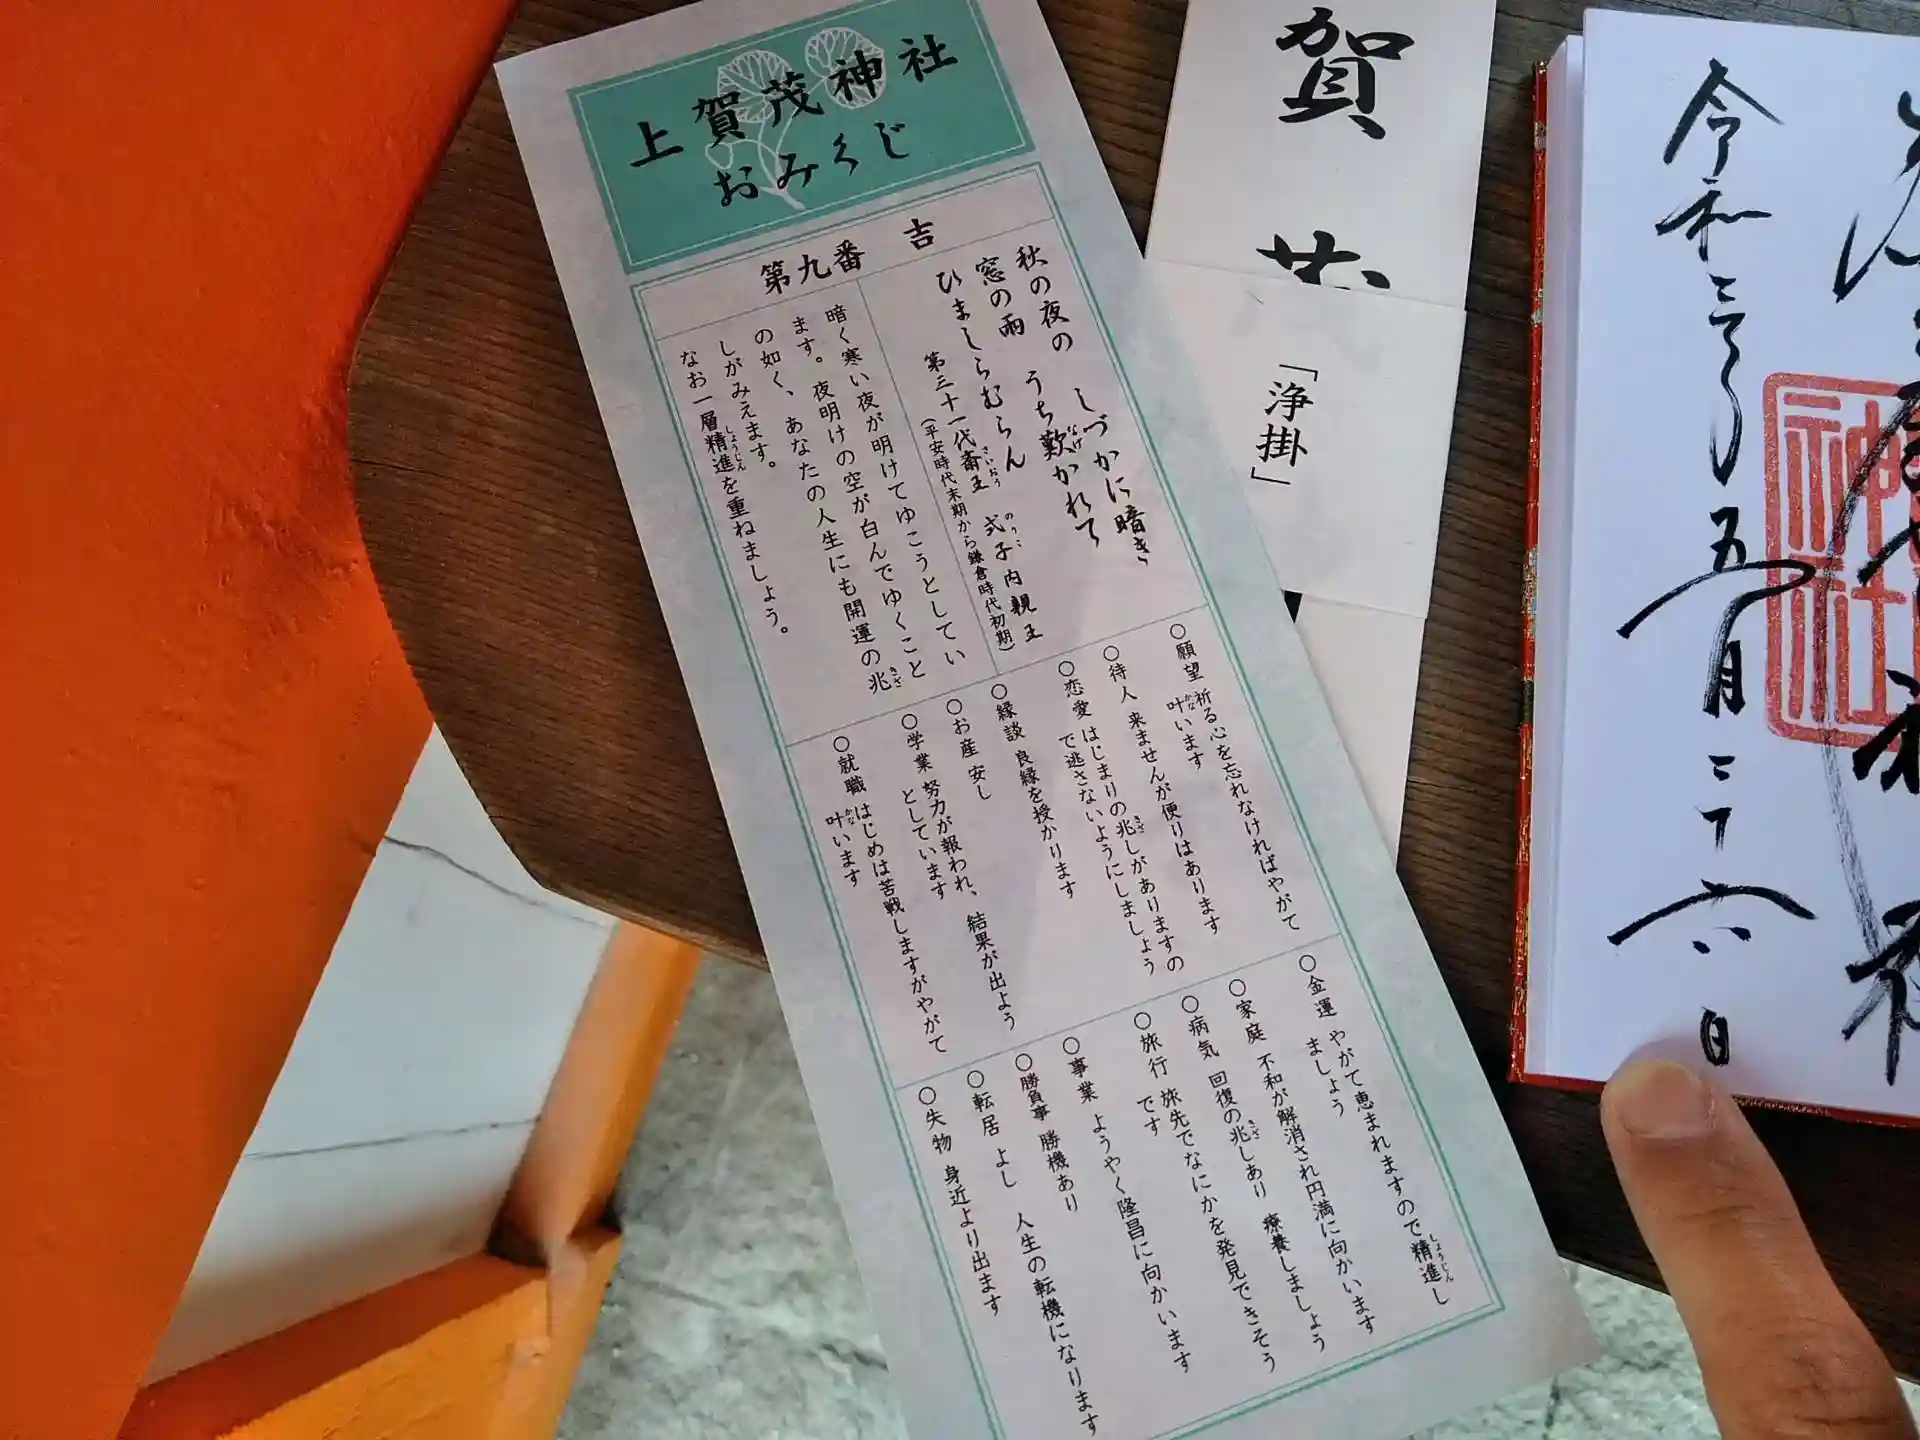 上賀茂神社
おみくじ
第九番 吉
秋の夜の しづかに暗き
窓の雨 うち歎かれて
ひましらむらん
第三十一代斎王 式子内親王
(平安時代末期から鎌倉時代初期)
暗く寒い夜が明けてゆこうとしてい
ます。夜明けの空が白んでゆくこと
の如く、あなたの人生にも開運の兆
しがみえます。
なお一層精進を重ねましょう。
○願望 祈る心を忘れなければやがて
叶います
○待人 来ませんが便りはあります
○恋愛 はじまりの兆しがありますの
で逃さないようにしましょう
○縁談 良縁を授かります
○お産 安し
○学業 努力が報われ、結果が出よう
としています
○就職 はじめは苦戦しますがやがて
叶います
○金運 やがて恵まれますので精進し
ましょう
○家庭 不和が解消され円満に向かいます
○病気 回復の兆しあり 療養しましょう
○旅行 旅先でなにかを発見できそう
です
○事業 ようやく隆昌に向かいます
○勝負事 勝機あり
○転居 よし 人生の転機になります
○失物 身近より出ます
賀茂
「浄掛」
令和三年五月二十六日